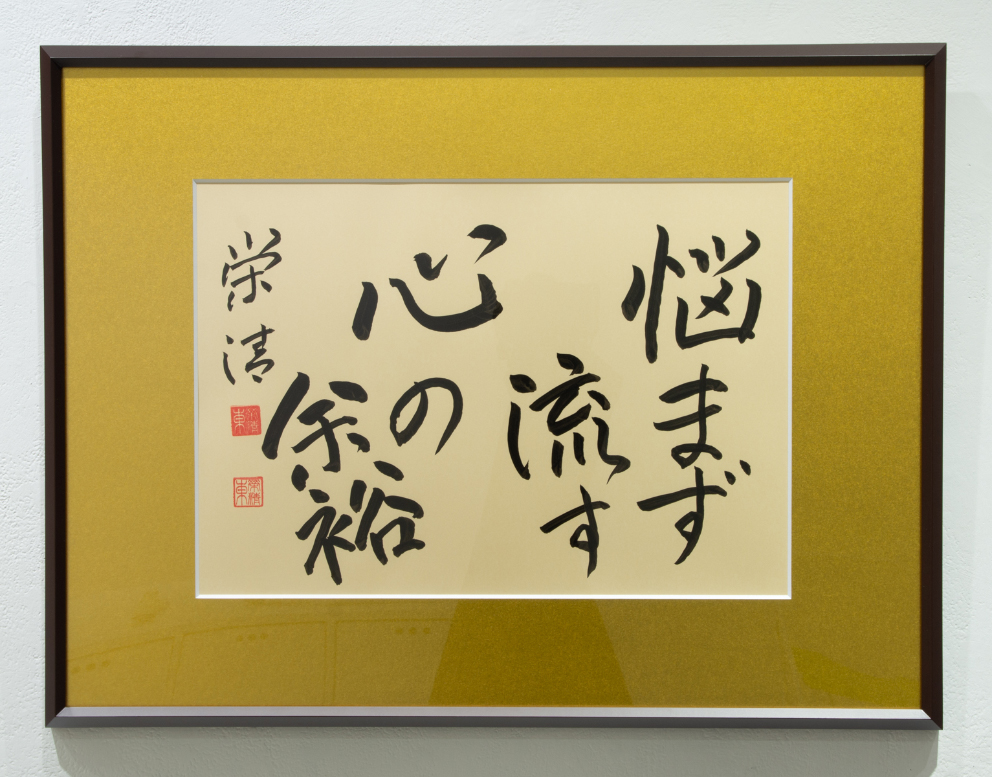 悩まず
流す
心の
余裕
栄清